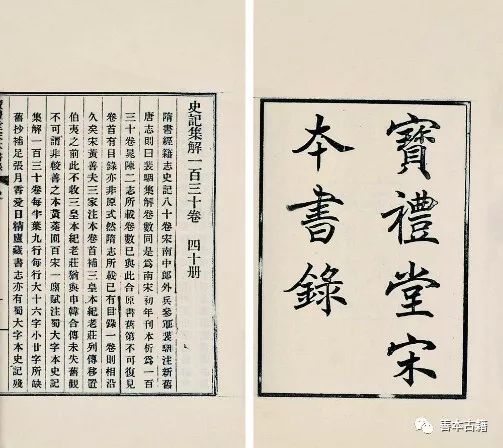 寶禮堂宋
本書錄
史記集解一百三十卷 四十册
隋書經籍志史記八十卷宋南中郎外兵參軍裴駰注新舊
唐志則曰裴駰集解卷數同是爲南宋初年刊本析爲一百
三十卷晁陳二志所載卷數已與此合原書舊第不可復見
卷首有目錄亦非原式然隋志所載已有目錄一卷則相沿
久矣宋黃善夫三家注本卷首補三皇本紀老莊列傳移置
伯夷之前此不收三皇本紀老莊猶與申韓合傳未失舊觀
不可謂非較善之本黃蕘圃百宋一廛賦注蜀大字本史記
集解一百三十卷每半葉九行每行大十六字小廿字所缺
舊抄補足張月霄愛日精廬藏書志亦有蜀大字本史記殘
善本古籍